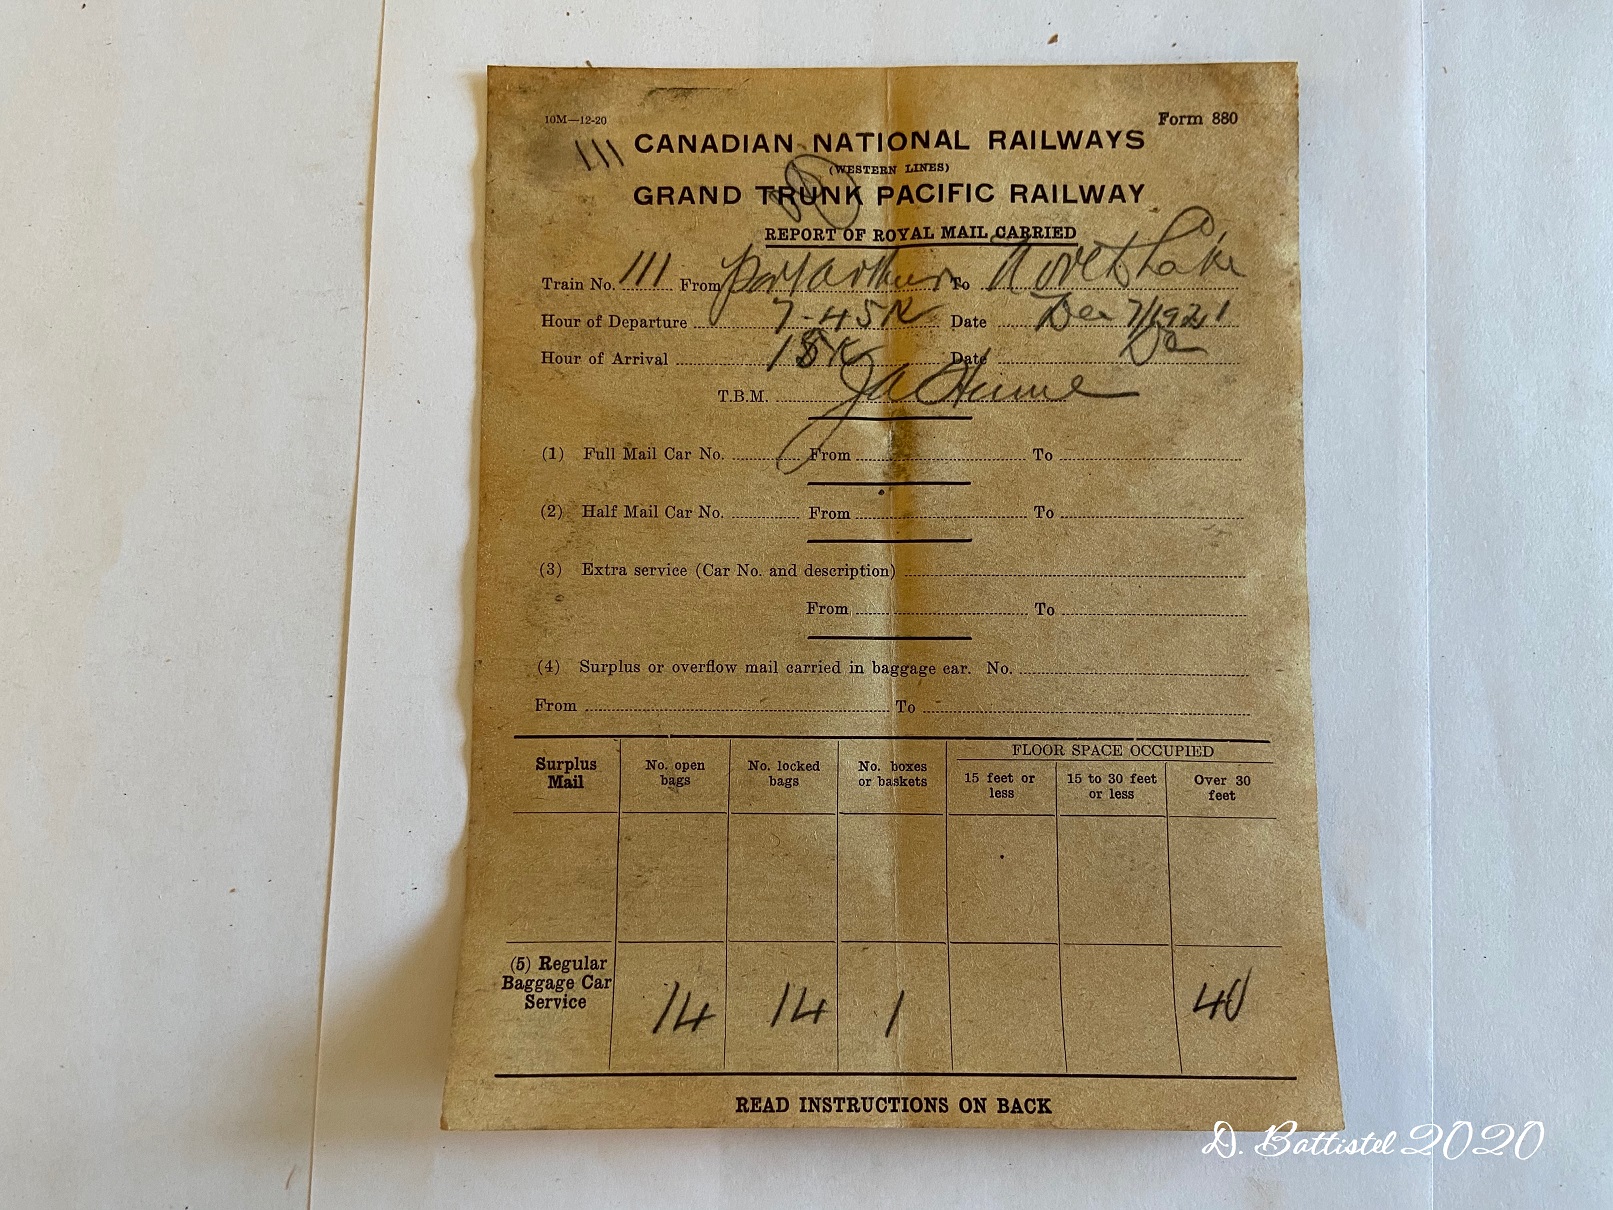 10M—12-20
Form 880
111 CANADIAN NATIONAL RAILWAYS
(WESTERN LINES)
GRAND TRUNK PACIFIC RAILWAY
REPORT OF ROYAL MAIL CARRIED
Train No. 111 From Port Arthur To North Lake
Hour of Departure 7-45K Date Dec 7/1921
Hour of Arrival 18K Date Do
T.B.M. JA Hume
(1) Full Mail Car No. From To
(2) Half Mail Car No. From To
(3) Extra service (Car No. and description)
From To
(4) Surplus or overflow mail carried in baggage car. No.
From To
Surplus Mail No. open bags No. locked bags No. boxes or baskets FLOOR SPACE OCCUPIED
15 feet or less 15 to 30 feet or less Over 30 feet
(5) Regular Baggage Car Service 14 14 1 40
READ INSTRUCTIONS ON BACK
D. Battistel 2020